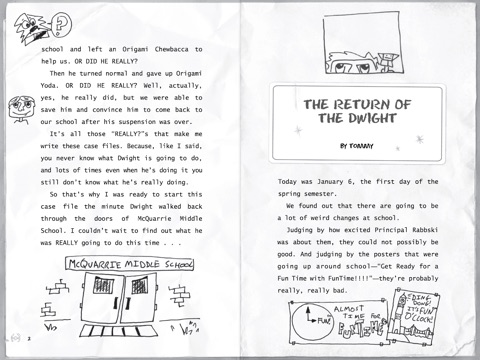 ?
school and left an Origami Chewbacca to
help us. OR DID HE REALLY?
Then he turned normal and gave up Origami
Yoda. OR DID HE REALLY? Well, actually,
yes, he really did, but we were able to
save him and convince him to come back to
our school after his suspension was over.
It's all those "REALLY?"s that make me
write these case files. Because, like I said,
you never know what Dwight is going to do,
and lots of times even when he's doing it you
still don't know what he's really doing.
So that's why I was ready to start this
case file the minute Dwight walked back
through the doors of McQuarrie Middle
School. I couldn't wait to find out what he
was REALLY going to do this time . . .
McQUARRIE MIDDLE SCHOOL
2
THE RETURN OF
THE DWIGHT
BY TOMMY
Today was January 6, the first day of the
spring semester.
We found out that there are going to be
a lot of weird changes at school.
Judging by how excited Principal Rabbski
was about them, they could not possibly be
good. And judging by the posters that were
going up around school—"Get Ready for a
Fun Time with FunTime!!!!"—they're probably
really, really bad.
FUN!
ALMOST
TIME FOR
FUNTIME
DING
DONG!
IT'S FUN
O'CLOCK!